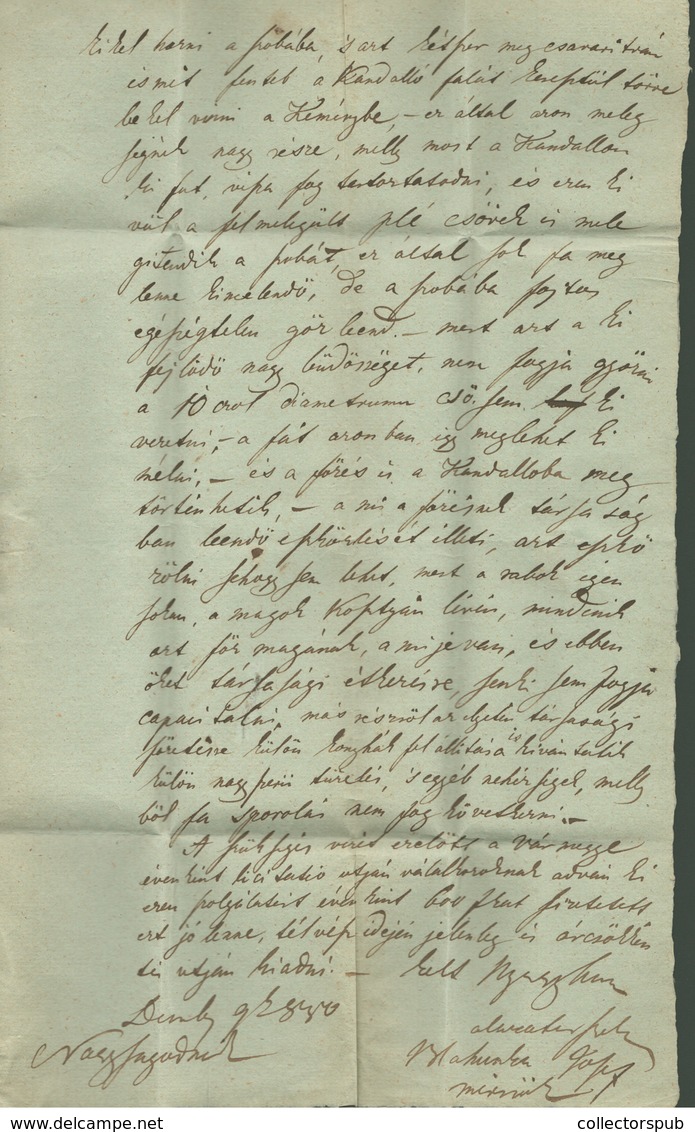 ki kel hozni a szobába, s azt kétszer meg csavaritván
ismét fentebb a Kandalló falát keresztül törve
be kel vinni a Kéménybe, – ez által azon meleg
ségnek nagy része, melly most a Kandallon
ki fut, visza fog tartoztatodni, és ezen ki
vül a felmelegült plé csövek is mele
gitendik a szobát, ez által sok fa meg
lenne kimélendő, de a szobába fojtos
egésségtelen gőz leend. – mert azt a ki
fejlödö nagy büdösséget, nem fogja győzni
a 10 czol diametrumu cső sem ki
vezetni, – a fát azonban igy meglehet ki
mélni, – és a főzés is a Kandalloba meg
történhetik, – a mi a főzésnek társaság
ban leendő eszközlését illeti, azt eszkö
zölni sehogy sem lehet, mert a rabok igen
sokan, a magok Kosztyán lévén, mindenik
azt föz magának, a mije van, és ebben
őket társasági étkezésre, senki sem fogja
capacitálni, más részröl az illyetén társasági
főzésre külön konyhák fel állitása is kivántatik
külön nagyszerű tüzelés, s egyéb nehézségek, melly
ből fa sporolás nem fog következni. –
A szükséges vizet ezelött a vármegye
évenkint licitatio utján válalkozoknak adván ki
ezen szolgálatért évenkint 600 frtat fizetett
ezt jó lenne, télvész idején jelenleg is árcsökken
tés utján kiadni. – Kelt
Nagyságodnak
alazatos szolgája
mérnök
collectorspub